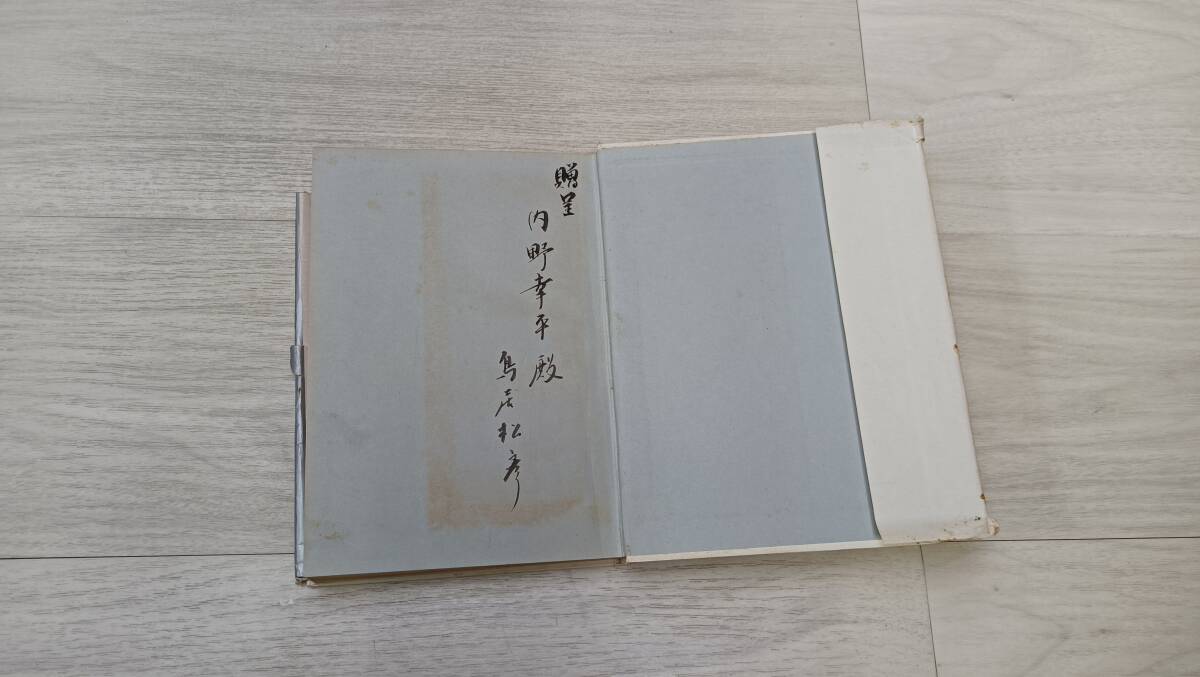 贈呈
内野幸平殿
鳥居松彦